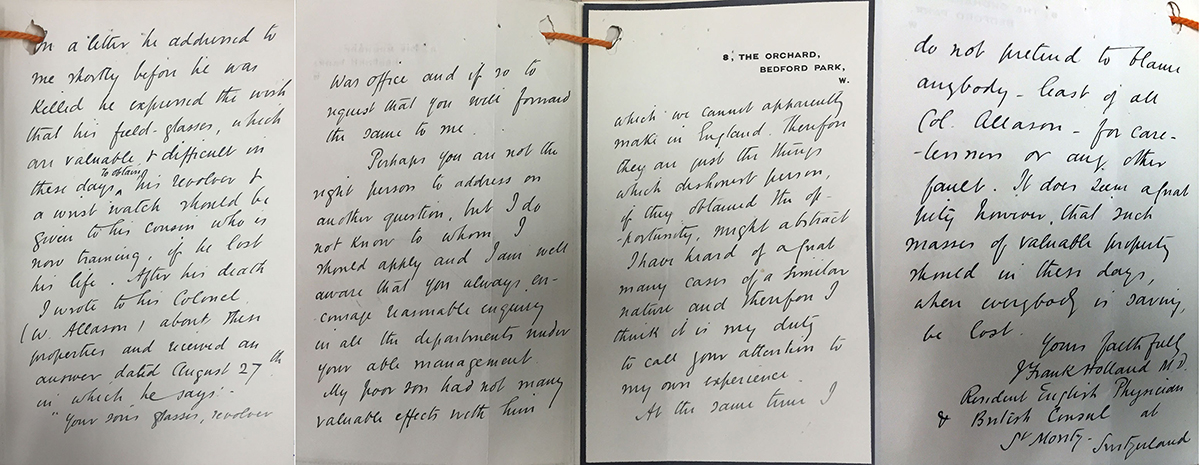 In a letter he addressed to
me shortly before he was
killed he expressed the wish
that his field-glasses, which
are valuable & difficult in
to obtain
these days, his revolver &
a wrist watch should be
given to his cousin who is
now training, if he lost
his life. After his death
I wrote to his Colonel
(W. Allason) about these
properties and received an
answer, dated August 27th
in which he says:-
"Your son's glasses, revolver
War office and if so to
request that you will forward
the same to me.
Perhaps you are not the
right person to address on
another question, but I do
not know to whom I
should apply and I am well
aware that you always en-
-courage reasonable enquiry
in all the departments under
your able management.
My poor son had not many
valuable effects with him
8, THE ORCHARD,
BEDFORD PARK,
W.
which we cannot apparently
make in England. Therefore
they are just the things
which dishonest person,
if they obtained the op-
-portunity, might abstract
I have heard of a great
many cases of a similar
nature and therefore I
think it is my duty
to call your attention to
my own experience.
At the same time I
do not pretend to blame
anybody - least of all
Col. Allason - for care-
-lessness or any other
fault. It does seem a great
pity however, that such
masses of valuable property
should in these days,
when everybody is saving,
be lost.
Yours faithfully
J Frank Holland M.D.
Resident English Physician
& British Consul at
St Moritz - Switzerland